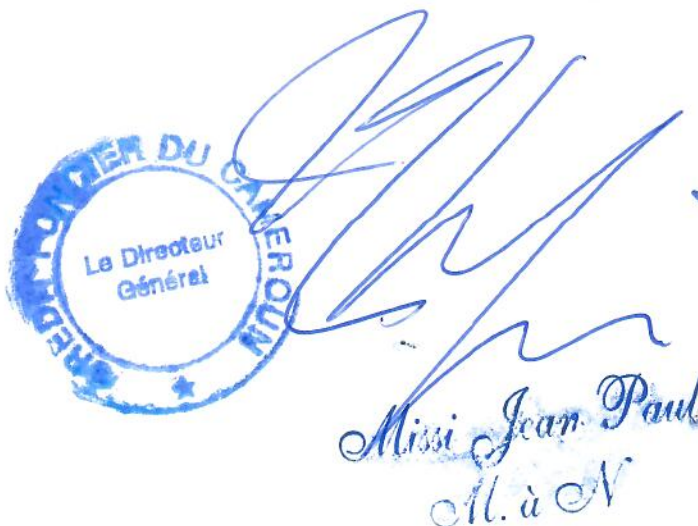 CREDIT FONCIER DU CAMEROUN
Le Directeur
Général
Missi Jean Paul
M. à N